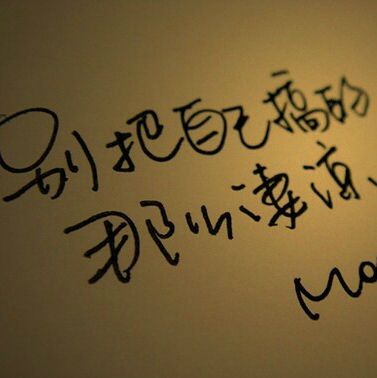 别把自己搞的
那么凄凉.
Ma